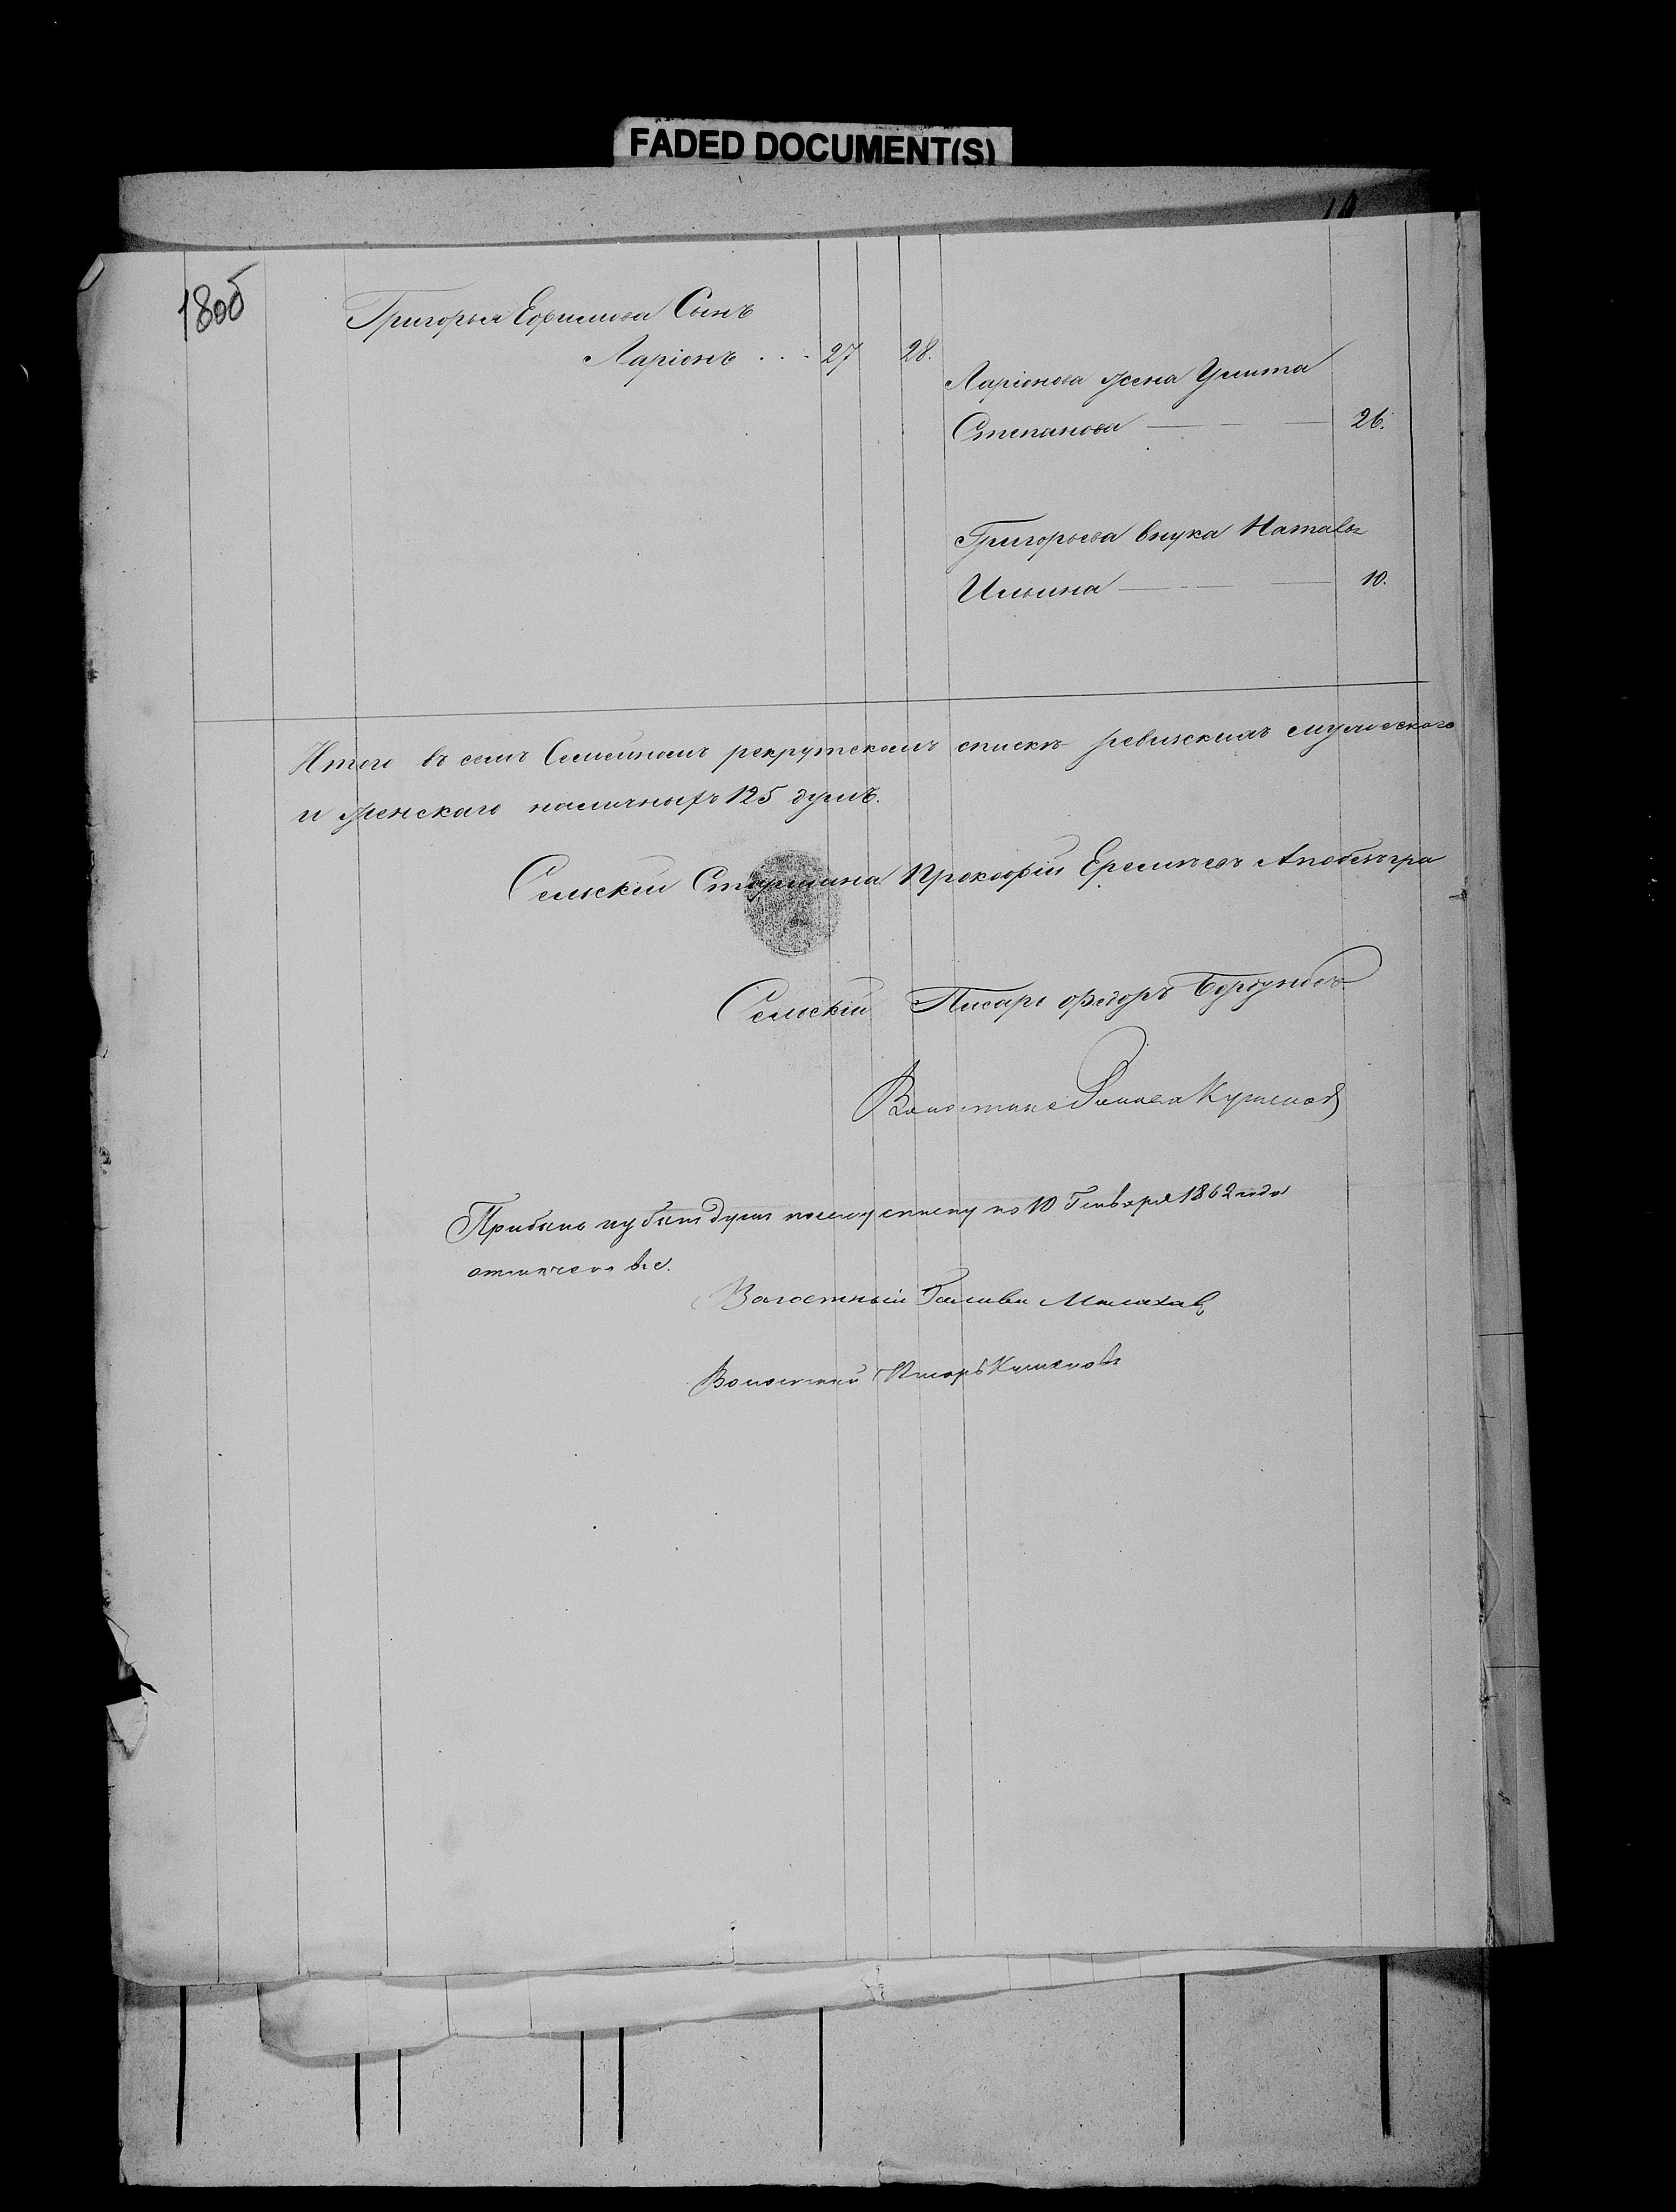 FADED DOCUMENT(S)
18об
Григорья Ефимова Сынъ
Ларіонъ . . . 27 28.
Ларіонова жена Улита
Степанова — 26.
Григорьева внука Наталья
Ильина — 10.
Итого въ семъ Семейномъ рекрутскомъ списке ревижскихъ мужескаго
и женскаго наличныхъ 125 душъ.
Сельскій Старшина Прокофій
Сельскій Писарь Федоръ
Прибыли и убыли души по сему списку по 10 Генваря 1862 года
отмечены все.
Волостный Голова Малахов
Волостной Писарь